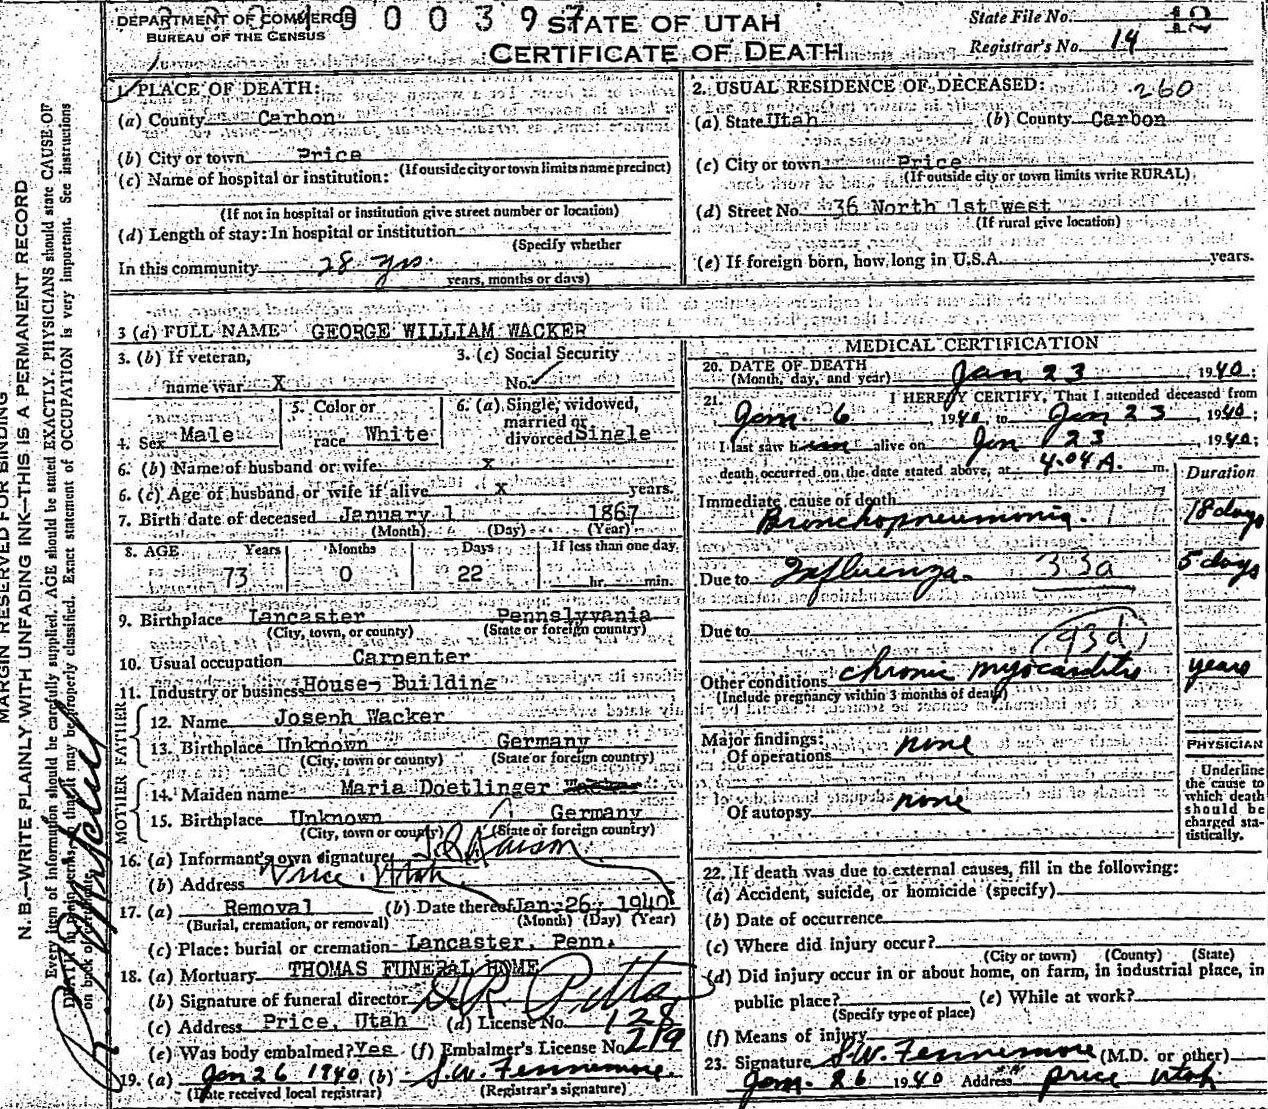 DEPARTMENT OF COMMERCE
BUREAU OF THE CENSUS
0 0 3 9 7
STATE OF UTAH
CERTIFICATE OF DEATH
State File No. 12
Registrar's No. 14
MARGIN RESERVED FOR BINDING
N.B—WRITE PLAINLY WITH UNFADING INK—THIS IS A PERMANENT RECORD
Every item of information should be carefully supplied. AGE should be stated EXACTLY. PHYSICIANS should state CAUSE OF
DEATH in plain terms, so that it may be properly classified. Exact statement of OCCUPATION is very important. See instructions
on back of certificate.
1. PLACE OF DEATH:
(a) County Carbon
(b) City or town Price
(If outside city or town limits name precinct)
(c) Name of hospital or institution:
(If not in hospital or institution give street number or location)
(d) Length of stay: In hospital or institution
(Specify whether
In this community 28 yrs.
years, months or days)
2. USUAL RESIDENCE OF DECEASED: 260
(a) State Utah (b) County Carbon
(c) City or town Price
(If outside city or town limits write RURAL)
(d) Street No. 36 North 1st west
(If rural give location)
(e) If foreign born, how long in U.S.A. years.
3 (a) FULL NAME GEORGE WILLIAM WACKER
3. (b) If veteran,
name war X
3. (c) Social Security
No.
4. Sex Male
5. Color or
race White
6. (a) Single, widowed,
married or
divorced Single
6. (b) Name of husband or wife X
6. (c) Age of husband or wife if alive X years.
7. Birth date of deceased January 1 1867
(Month) (Day) (Year)
8. AGE Years Months Days If less than one day
73 0 22 hr. min.
9. Birthplace Lancaster Pennslyvania
(City, town, or county) (State or foreign country)
10. Usual occupation Carpenter
11. Industry or business House Building
FATHER
12. Name Joseph Wacker
13. Birthplace Unknown Germany
(City, town or county) (State or foreign country)
MOTHER
14. Maiden name Maria Doetlinger Wacker
15. Birthplace Unknown Germany
(City, town or county) (State or foreign country)
16. (a) Informant's own signature
(b) Address Price, Utah
17. (a) Removal (b) Date thereof Jan 26 1940
(Burial, cremation, or removal) (Month) (Day) (Year)
(c) Place: burial or cremation Lancaster, Penn.
18. (a) Mortuary THOMAS FUNERAL HOME
(b) Signature of funeral director
(c) Address Price, Utah (d) License No. 128
(e) Was body embalmed? Yes (f) Embalmer's License No. 219
19. (a) Jan 26 1940 (b) S.W. Fennemore
(Date received local registrar) (Registrar's signature)
MEDICAL CERTIFICATION
20. DATE OF DEATH
(Month, day, and year) Jan 23, 1940;
21. I HEREBY CERTIFY, That I attended deceased from
Jan. 6, 1940, to Jan 23, 1940;
I last saw him alive on Jan 23, 1940;
death occurred on the date stated above, at 4.04 A. m.
Duration
Immediate cause of death
Bronchopneumonia. 18 days
Due to Influenza. 33a 5 days
Due to
93d
Other conditions chronic myocarditis years
(Include pregnancy within 3 months of death)
Major findings:
Of operations none
Of autopsy none
PHYSICIAN
Underline
the cause to
which death
should be
charged sta-
tistically.
22. If death was due to external causes, fill in the following:
(a) Accident, suicide, or homicide (specify)
(b) Date of occurrence
(c) Where did injury occur?
(City or town) (County) (State)
(d) Did injury occur in or about home, on farm, in industrial place, in
public place? (e) While at work?
(Specify type of place)
(f) Means of injury
23. Signature S.W. Fennemore (M.D. or other)
Jan. 26 1940 Address Price Utah